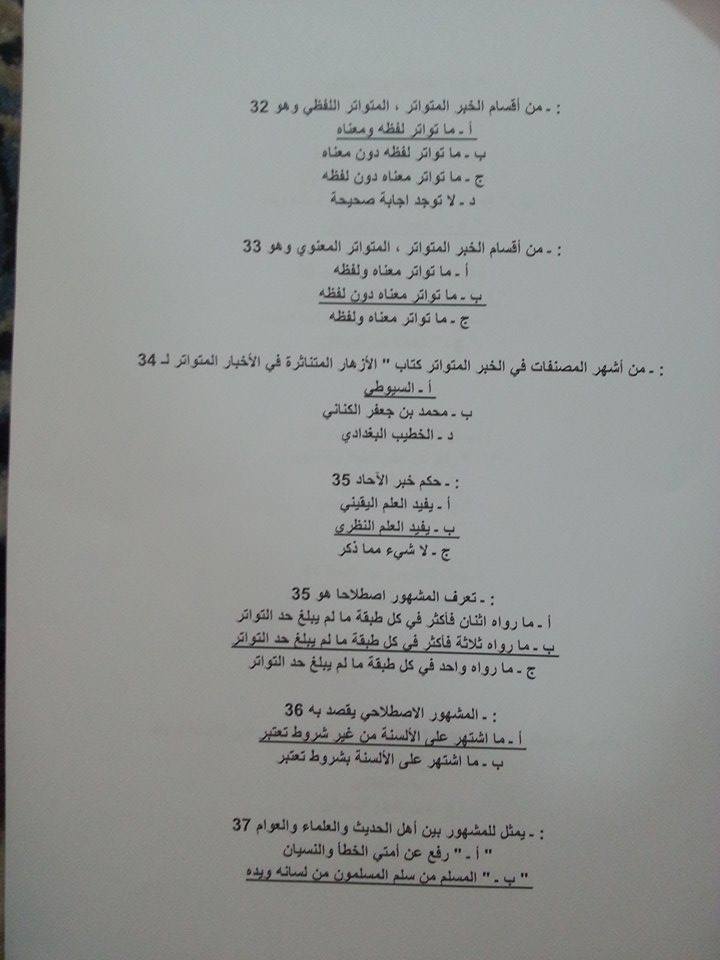 32 من أقسام الخبر المتواتر ، المتواتر اللفظي وهو ـ :
أ ـ ما تواتر لفظه ومعناه
ب ـ ما تواتر لفظه دون معناه
ج ـ ما تواتر معناه دون لفظه
د ـ لا توجد اجابة صحيحة
33 من أقسام الخبر المتواتر ، المتواتر المعنوي وهو ـ :
أ ـ ما تواتر معناه ولفظه
ب ـ ما تواتر معناه دون لفظه
ج ـ ما تواتر معناه ولفظه
34 من أشهر المصنفات في الخبر المتواتر كتاب " الأزهار المتناثرة في الأخبار المتواتر لـ ـ :
أ ـ السيوطي
ب ـ محمد بن جعفر الكناني
د ـ الخطيب البغدادي
35 حكم خبر الآحاد ـ :
أ ـ يفيد العلم اليقيني
ب ـ يفيد العلم النظري
ج ـ لا شيء مما ذكر
35 تعرف المشهور اصطلاحا هو ـ :
أ ـ ما رواه اثنان فأكثر في كل طبقة ما لم يبلغ حد التواتر
ب ـ ما رواه ثلاثة فأكثر في كل طبقة ما لم يبلغ حد التواتر
ج ـ ما رواه واحد في كل طبقة ما لم يبلغ حد التواتر
36 المشهور الاصطلاحي يقصد به ـ :
أ ـ ما اشتهر على الألسنة من غير شروط تعتبر
ب ـ ما اشتهر على الألسنة بشروط تعتبر
37 يمثل للمشهور بين أهل الحديث والعلماء والعوام ـ :
" أ ـ " رفع عن أمتي الخطأ والنسيان
" ب ـ " المسلم من سلم المسلمون من لسانه ويده